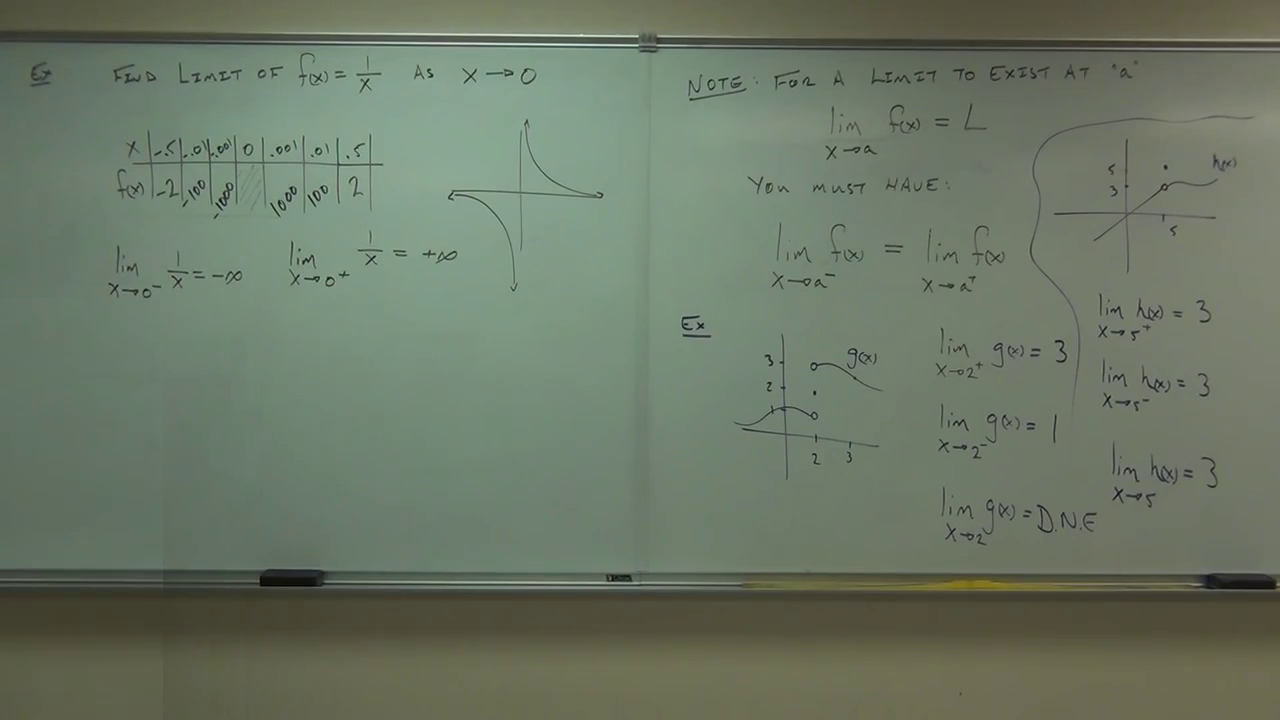 Ex FIND LIMIT OF f(x) = 1/x AS x → 0
x | -.5 | -.01 | -.001 | 0 | .001 | .01 | .5
f(x) | -2 | -100 | -1000 | | 1000 | 100 | 2
lim x→0⁻ 1/x = -∞
lim x→0⁺ 1/x = +∞
NOTE: FOR A LIMIT TO EXIST AT "a"
lim x→a f(x) = L
YOU MUST HAVE:
lim x→a⁻ f(x) = lim x→a⁺ f(x)
Ex
g(x)
3
2
1
2 3
lim x→2⁺ g(x) = 3
lim x→2⁻ g(x) = 1
lim x→2 g(x) = D.N.E
h(x)
5
3
5
lim x→5⁺ h(x) = 3
lim x→5⁻ h(x) = 3
lim x→5 h(x) = 3